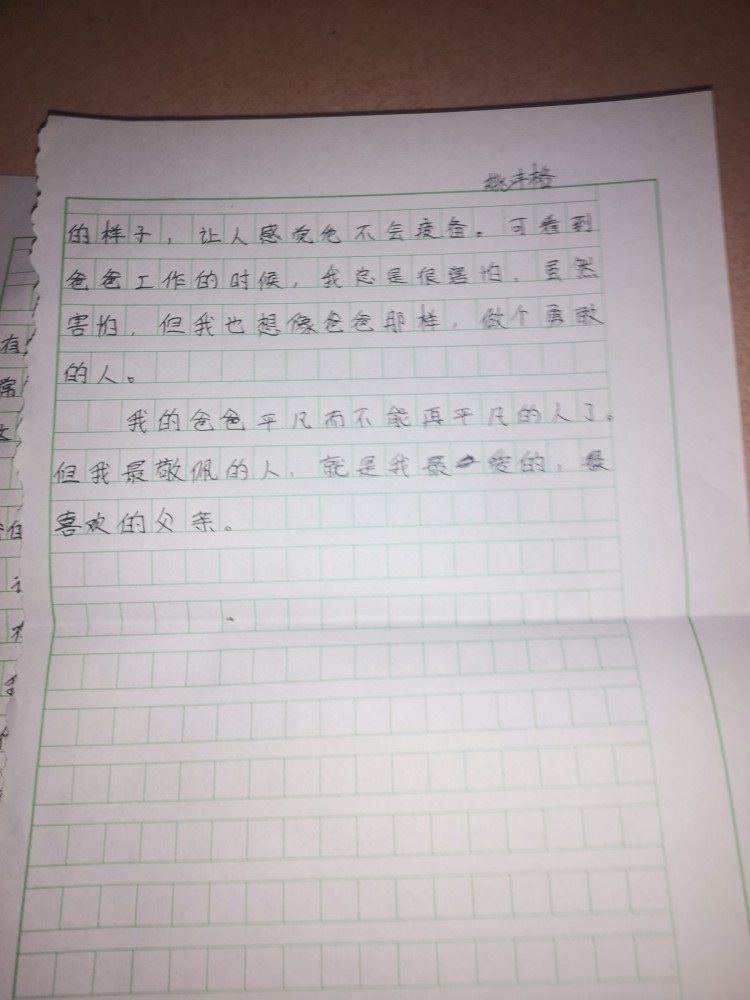 的样子，让人感觉他不会疲备。可看到
爸爸工作的时候，我总是很害怕，虽然
害怕，但我也想像爸爸那样，做个勇敢
的人。
我的爸爸平凡而不能再平凡的人了。
但我最敬佩的人，就是我最爱的，最
喜欢的父亲。
有
常